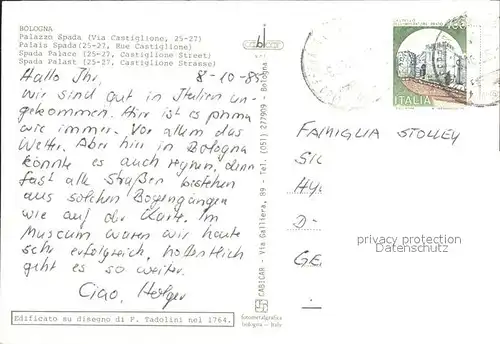 BOLOGNA
Palazzo Spada (Via Castiglione, 25-27)
Palais Spada (25-27, Rue Castiglione)
Spada Palace (25-27, Castiglione Street)
Spada Palast (25-27, Castiglione Strasse)
Hallo Ihr, 8-10-85
wir sind gut in Italien an-
gekommen. Hier ist es prima
wie immer. Vor allem das
Wetter. Aber hier in Bologna
könnte es auch regnen, denn
fast alle Straßen bestehen
aus solchen Bogengängen
wie auf der Karte. Im
Museum waren wir heute
sehr erfolgreich, hoffentlich
geht es so weiter.
Ciao, Holger
Edificato su disegno di P. Tadolini nel 1764.
CABICAR - Via Galliera, 89 - Tel. (051) 277909 - Bologna
fotometalgrafica
bologna - Italy
ITALIA
FAMIGLIA STOLLEY
D-
privacy protection
Datenschutz